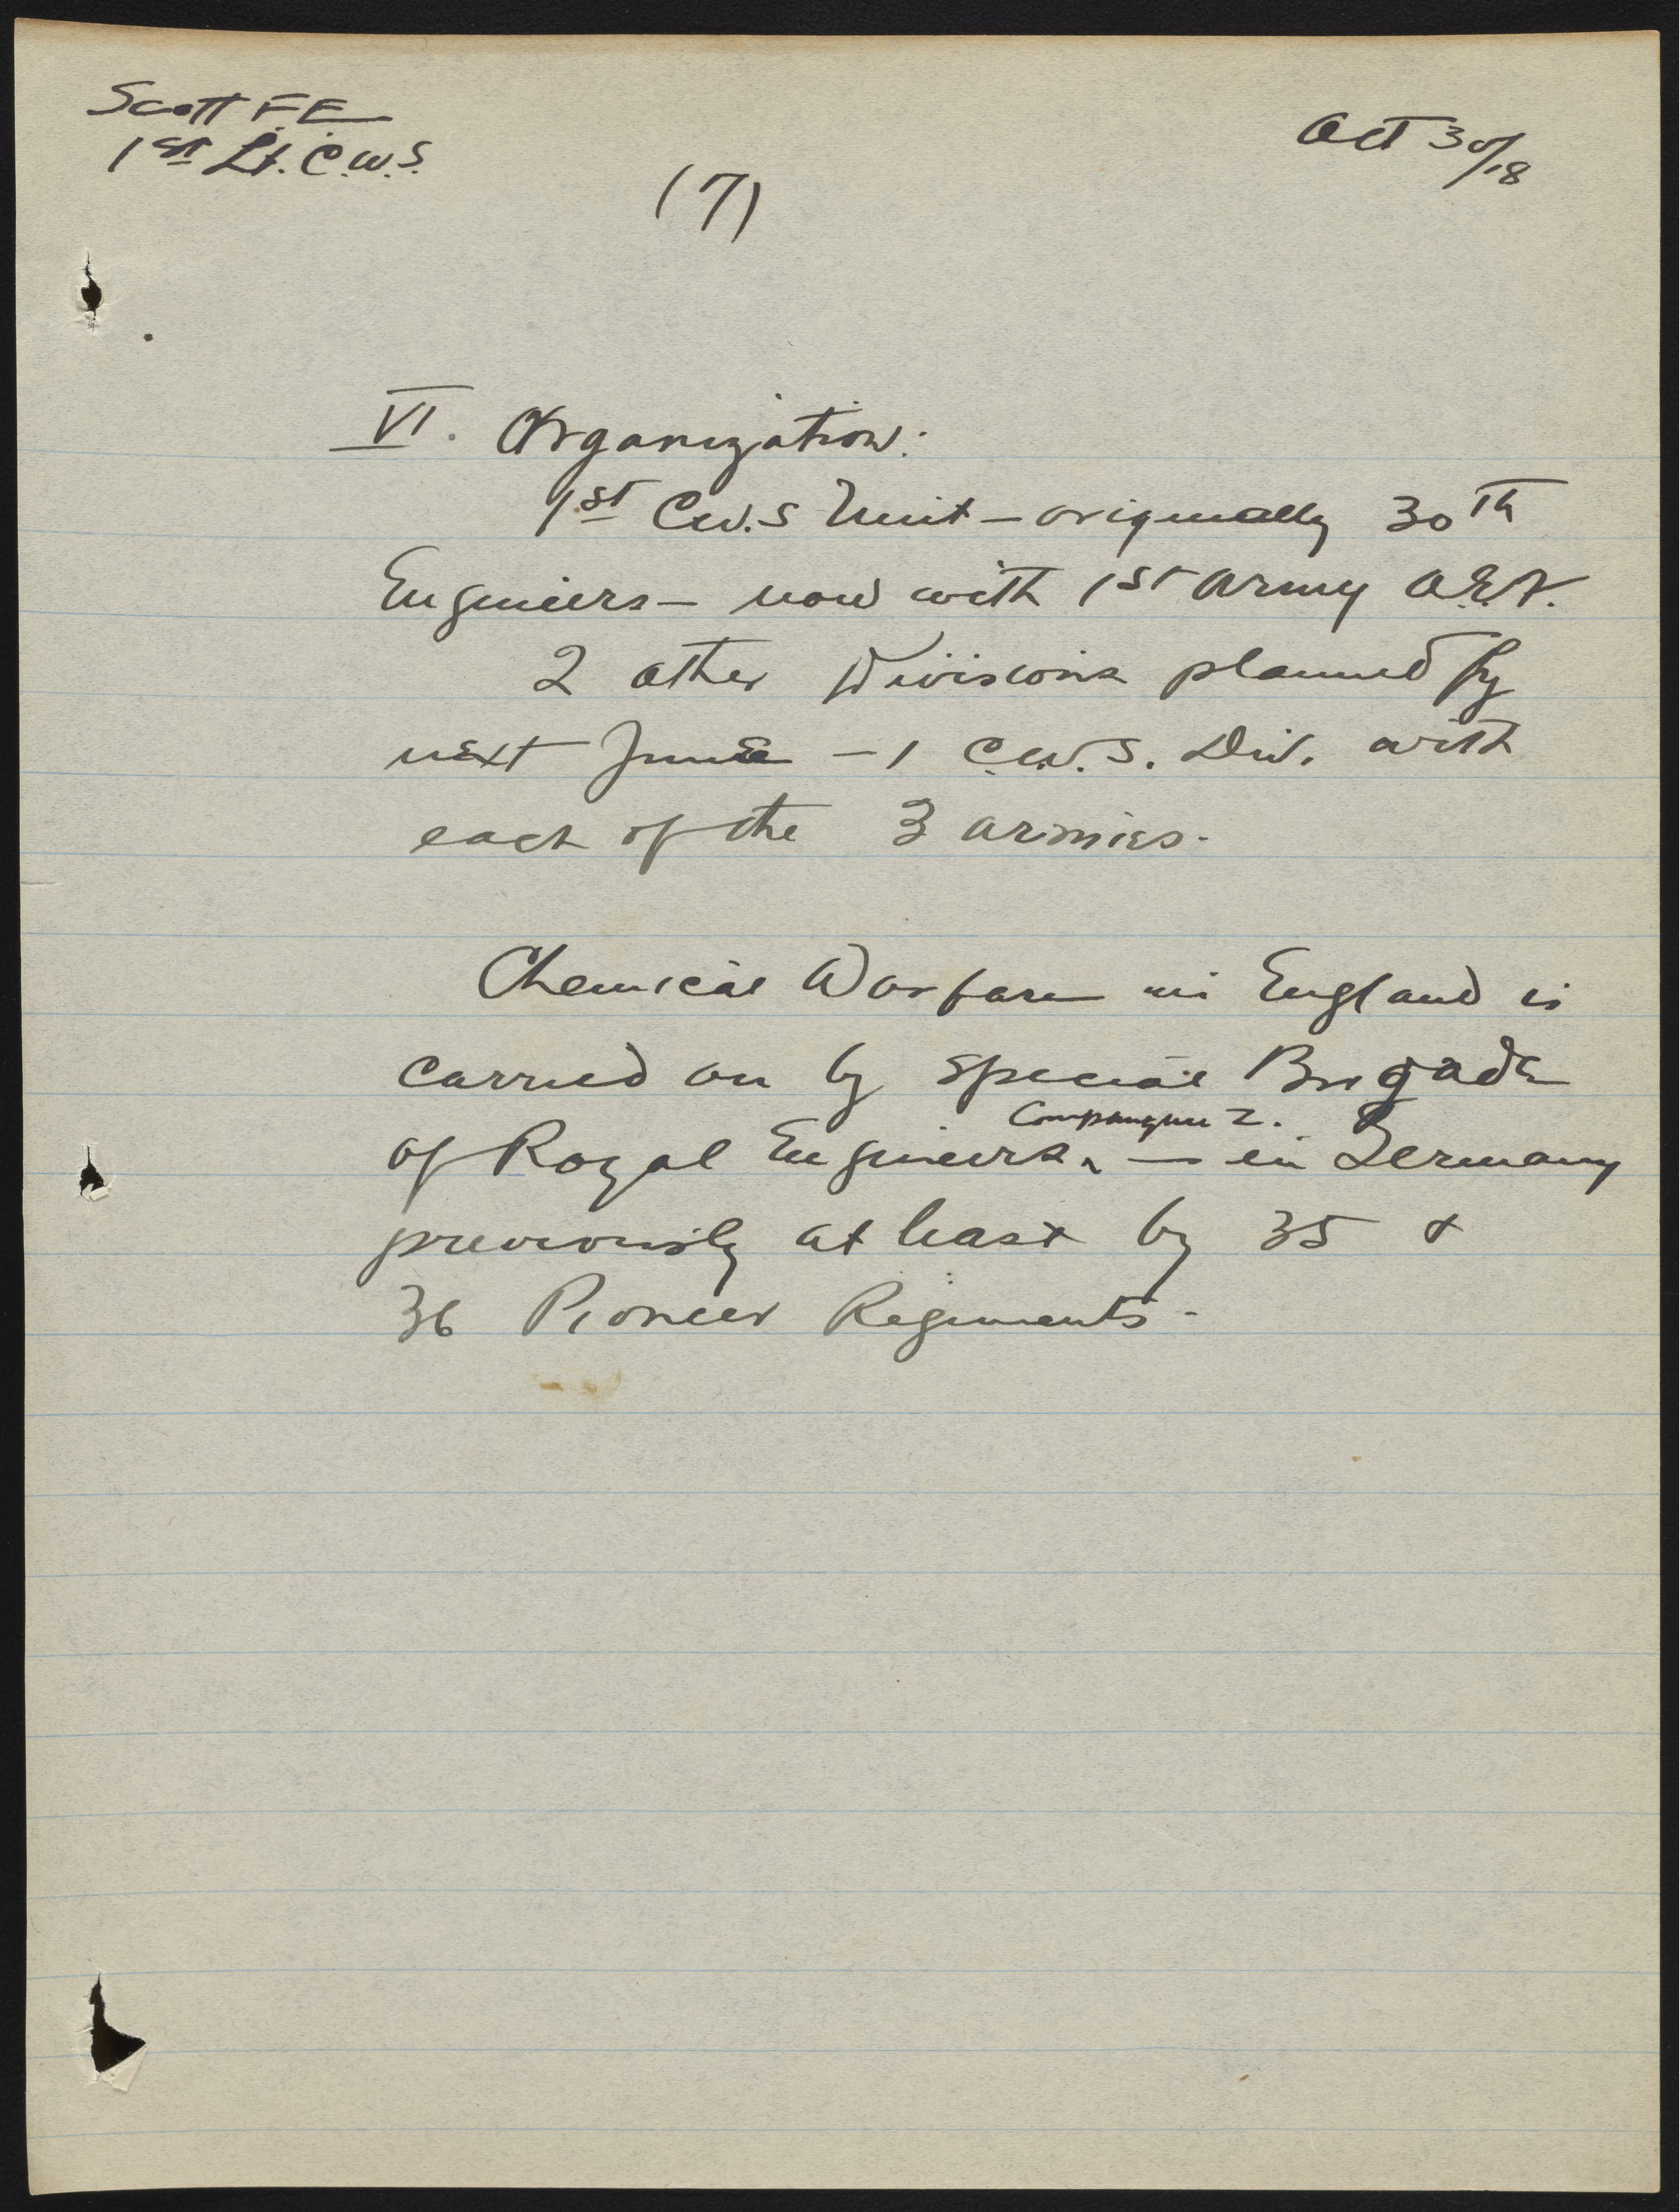 Scott F.E.
1st Lt. C.W.S.
Oct 30/18
(7)
VI. Organization:
1st C.W.S Unit – originally 30th
Engineers – now with 1st Army A.E.F.
2 other Divisions planned by
next June – 1 C.W.S. Div. with
each of the 3 armies.
Chemical Warfare in England is
carried on by special Brigade
of Royal Engineers – in Germany
previously at least by 35 &
36 Pioneer Regiments.